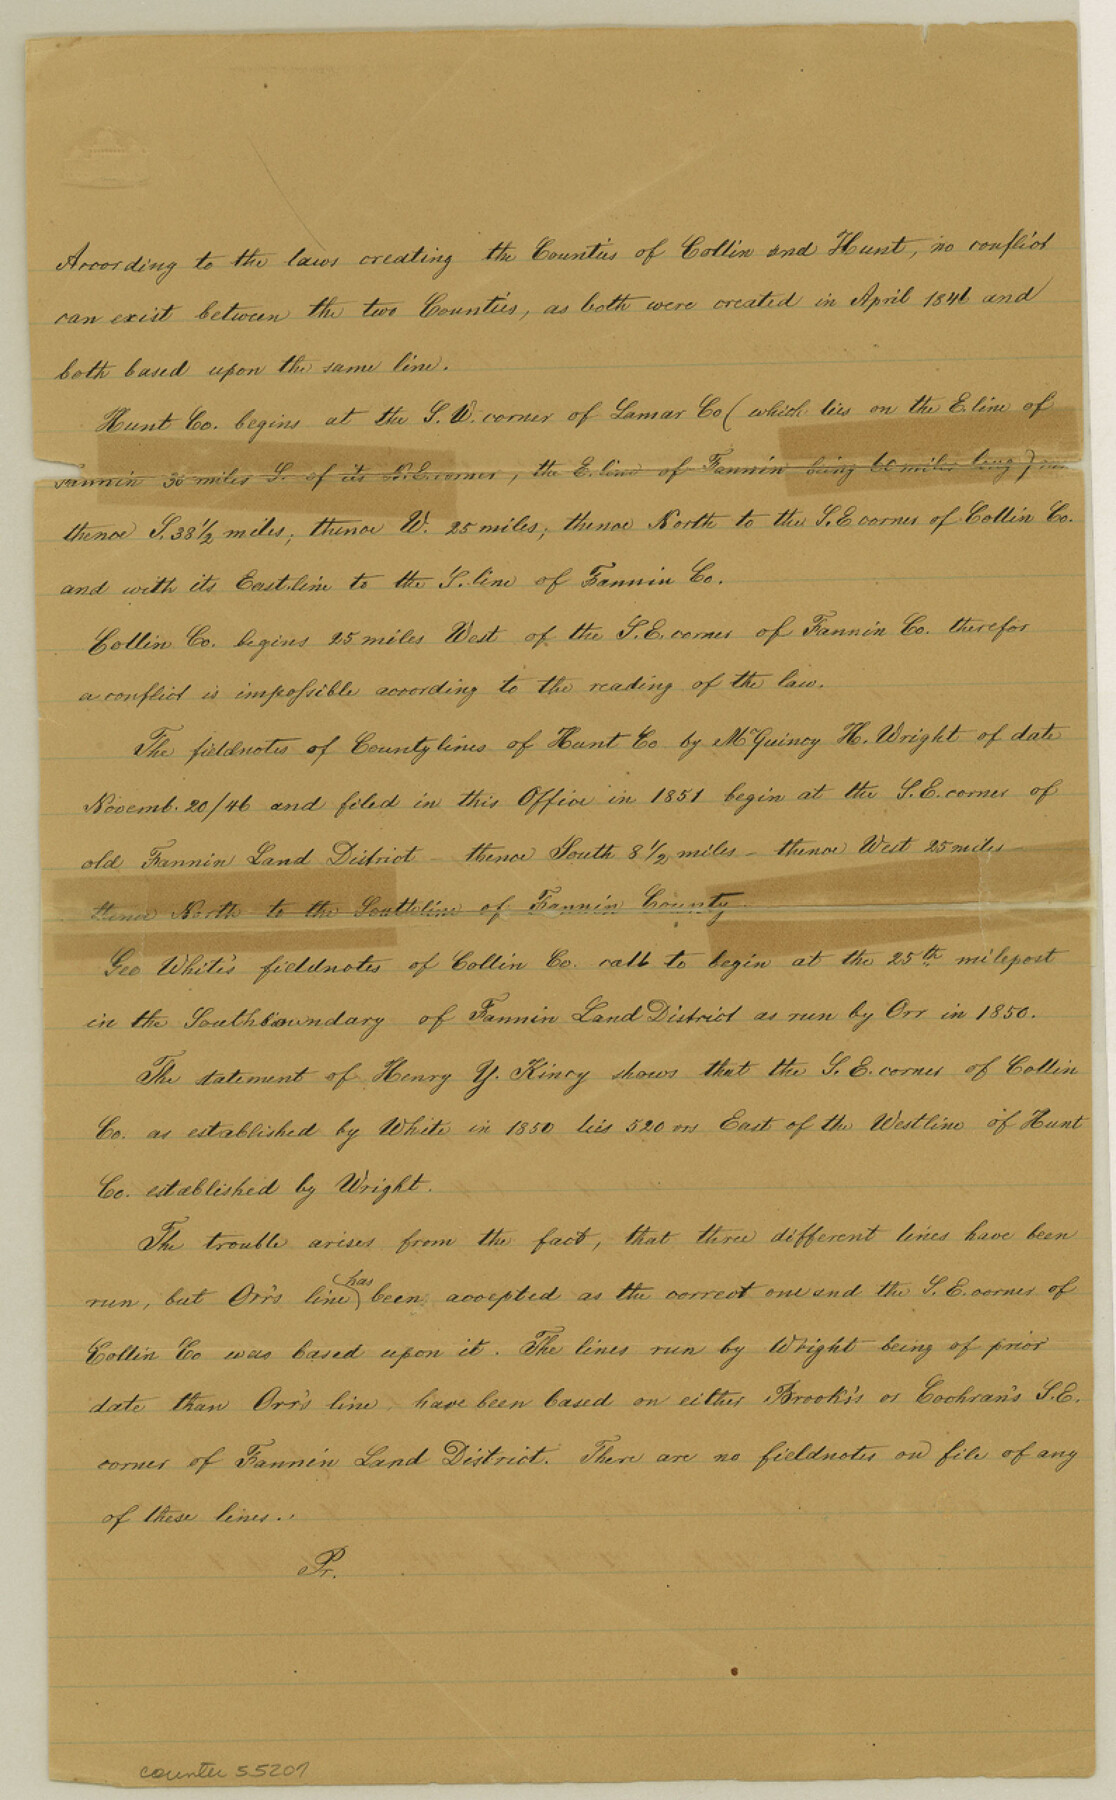 According to the laws creating the Counties of Collin and Hunt, no conflict
can exist between the two Counties, as both were created in April 1846 and
both based upon the same line.
Hunt Co. begins at the S.W. corner of Lamar Co (which lies on the E. line of
Fannin 30 miles S. of its N.E. corner, the E. line of Fannin being 60 miles long)
thence S. 38 1/2 miles; thence W. 25 miles; thence North to the S.E corner of Collin Co.
and with its East line to the S. line of Fannin Co.
Collin Co. begins 25 miles West of the S.E. corner of Fannin Co. therefor
a conflict is impossible according to the reading of the law.
The fieldnotes of County lines of Hunt Co by McQuincy H. Wright of date
Novemb. 20/46 and filed in this Office in 1851 begin at the S.E. corner of
old Fannin Land District – thence South 8 1/2 miles – thence West 25 miles –
thence North to the Southline of Fannin County.
Geo White's fieldnotes of Collin Co. call to begin at the 25th milepost
in the Southboundary of Fannin Land District as run by Orr in 1850.
The statement of Henry Y. Kincy shows that the S.E. corner of Collin
Co. as established by White in 1850 lies 520 vrs East of the Westline of Hunt
Co. established by Wright.
The trouble arises from the fact, that three different lines have been
run, but Orr's line has been accepted as the correct one and the S.E. corner of
Collin Co was based upon it. The lines run by Wright being of prior
date than Orr's line have been based on either Brook's or Cochran's S.E.
corner of Fannin Land District. There are no fieldnotes on file of any
of these lines.
Pr.
counter 55207